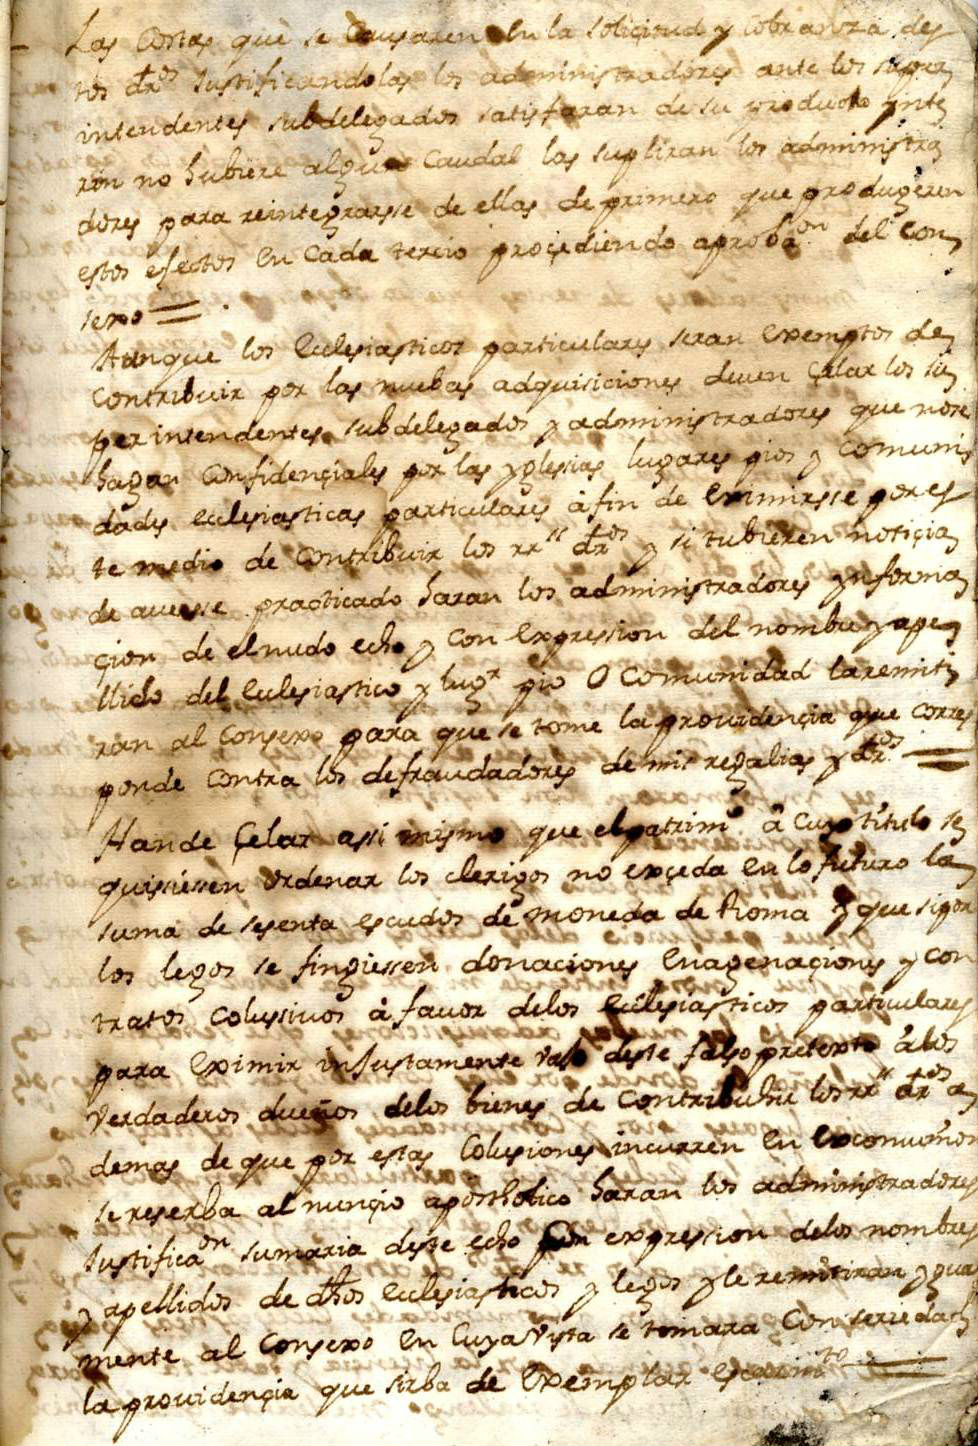 Las Costas que se Causaren En la soliçitud y Cobranza des
tos drōs Justificandolas los administradores ante los super
intendentes subdelegados satisfaran de su producto y nte
rin no hubiere algun Caudal las supliran los administra
dores para reintegrarsse de ellas de primero que produgeren
estos efectos En Cada tercio proçediendo aprobaon del Con
sexo =
Aunque los Eclesiasticos particulares seran Exemptos de
Contribuir por las nuebas adquisiciones deven Çelar los su
perintendentes subdelegados y administradores que nose
hagan Confidençiales por las yglesias lugares pios y Comuni
dades eclesiasticas particulares à fin de Eximirsse por es
te medio de Contribuir los rrs drōs y si tubieren notiçia
de averse practicado haran los administradores ynforma
çion de el nudo echo y Con Expression del nombre y ape
llido del Eclesiastico y lugr pio O Comunidad la remiti
ran al Consexo para que se tome la providençia que corres
ponde Contra los defraudadores de mis regalias y drōs =
Han de Çelar assi mismo que el patrimo â Cuyo titulo se
quissiessen ordenar los clerigos no exçeda En lo futuro la
suma de sesenta escudos de moneda de Roma y que si por
los legos se fingiessen donaciones Enagenaçiones y con
tratos Colusivos â favor delos Eclesiasticos particulares
para Eximir injustamente vajo deste falso pretexto â los
verdaderos dueños delos bienes de Contribuhir los rrs drōs a
demas de que por estas Colusiones incurren En Excomunon
se reserba al nunçio aposthotico haran los administradores
Justificaon sumaria deste echo Con expression delos nombres
y apellidos de dhōs Eclesiasticos y legos y le remitiran ygual
mente al Consexo En Cuya vista se tomara Con seriedad
la providençia que sirba de Exemplar escarmto =